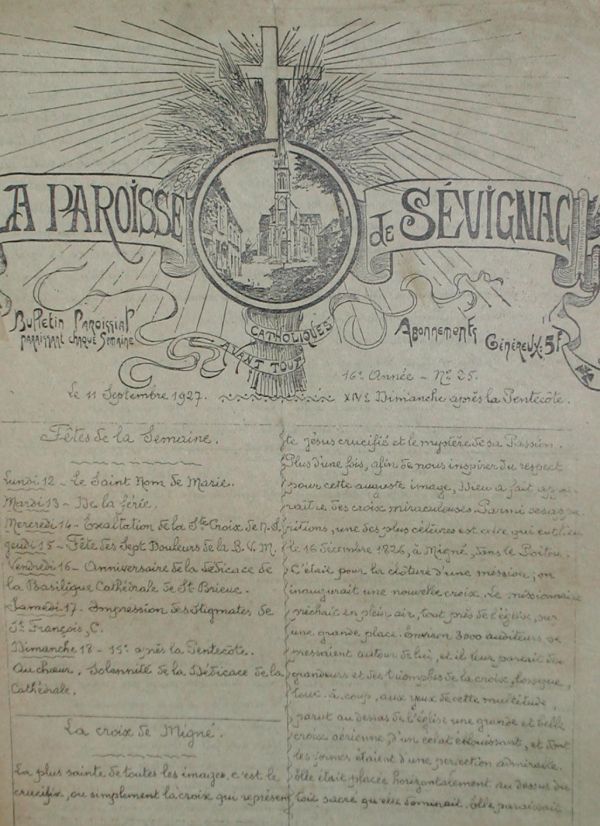 LA PAROISSE de SÉVIGNAC
Bulletin Paroissial
paraissant chaque Semaine
CATHOLIQUES
AVANT TOUT
Abonnements
Généreux: 5F
16e Année - No 25.
Le 11 Septembre 1927.
XIVe Dimanche après la Pentecôte.
Fêtes de la Semaine.
Lundi 12 - Le Saint Nom de Marie.
Mardi 13 - De la férie.
Mercredi 14 - Exaltation de la Ste Croix de N.S.
Jeudi 15 - Fête des Sept Douleurs de la B.V.M.
Vendredi 16 - Anniversaire de la Dédicace de
la Basilique Cathédrale de St Brieuc.
Samedi 17. Impression des Stigmates de
St François, C.
Dimanche 18 - 15e après la Pentecôte.
Au chœur, Solennité de la Dédicace de la
Cathédrale.
La croix de Migné.
La plus sainte de toutes les images, c'est le
crucifix, ou simplement la croix qui représen
te Jésus crucifié et le mystère de sa Passion.
Plus d'une fois, afin de nous inspirer du respect
pour cette auguste image, Dieu a fait appa
raître des croix miraculeuses. Parmi ces appa
ritions, une des plus célèbres est celle qui eut lieu
le 16 décembre 1826, à Migné, dans le Poitou.
C'était pour la clôture d'une mission; on
inaugurait une nouvelle croix. Le missionnaire
prêchait en plein air, tout près de l'église, sur
une grande place. Environ 3000 auditeurs se
pressaient autour de lui, et il leur parlait des
grandeurs et des triomphes de la croix, lorsque,
tout-à-coup, aux yeux de cette multitude,
parut au dessus de l'église une grande et belle
croix aérienne, d'un éclat éblouissant, et dont
les formes étaient d'une perfection admirable.
Elle était placée horizontalement au dessus du
toit sacré qu'elle dominait. Elle paraissait